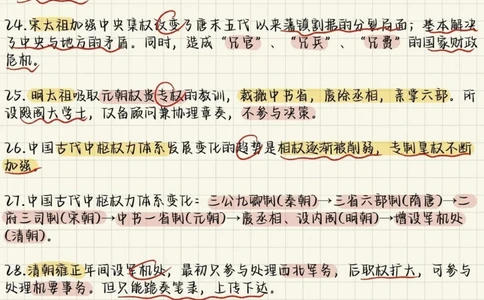 24.宋太祖加强中央集权改变了唐末五代以来藩镇割据的分裂局面；基本解决
了中央与地方的矛盾。同时，造成“冗官”、“冗兵”、“冗费”的国家财政
危机。
25.明太祖吸取元朝权贵专权的教训，裁撤中书省，废除丞相，亲掌六部。所
设殿阁大学士，仅备顾问兼协理章奏，不参与决策。
26.中国古代中枢权力体系发展变化的趋势是相权逐渐被削弱，专制皇权不断
加强。
27.中国古代中枢权力体系变化：三公九卿制(秦朝)→三省六部制(隋唐)→二
府三司制(宋朝)→中书一省制(元朝)→废丞相、设内阁(明朝)→增设军机处
(清朝)。
28.清朝雍正年间设军机处，最初只参与处理西北军务，后职权扩大，可参与
处理机要事务。但只能跪奏笔录，上传下达。